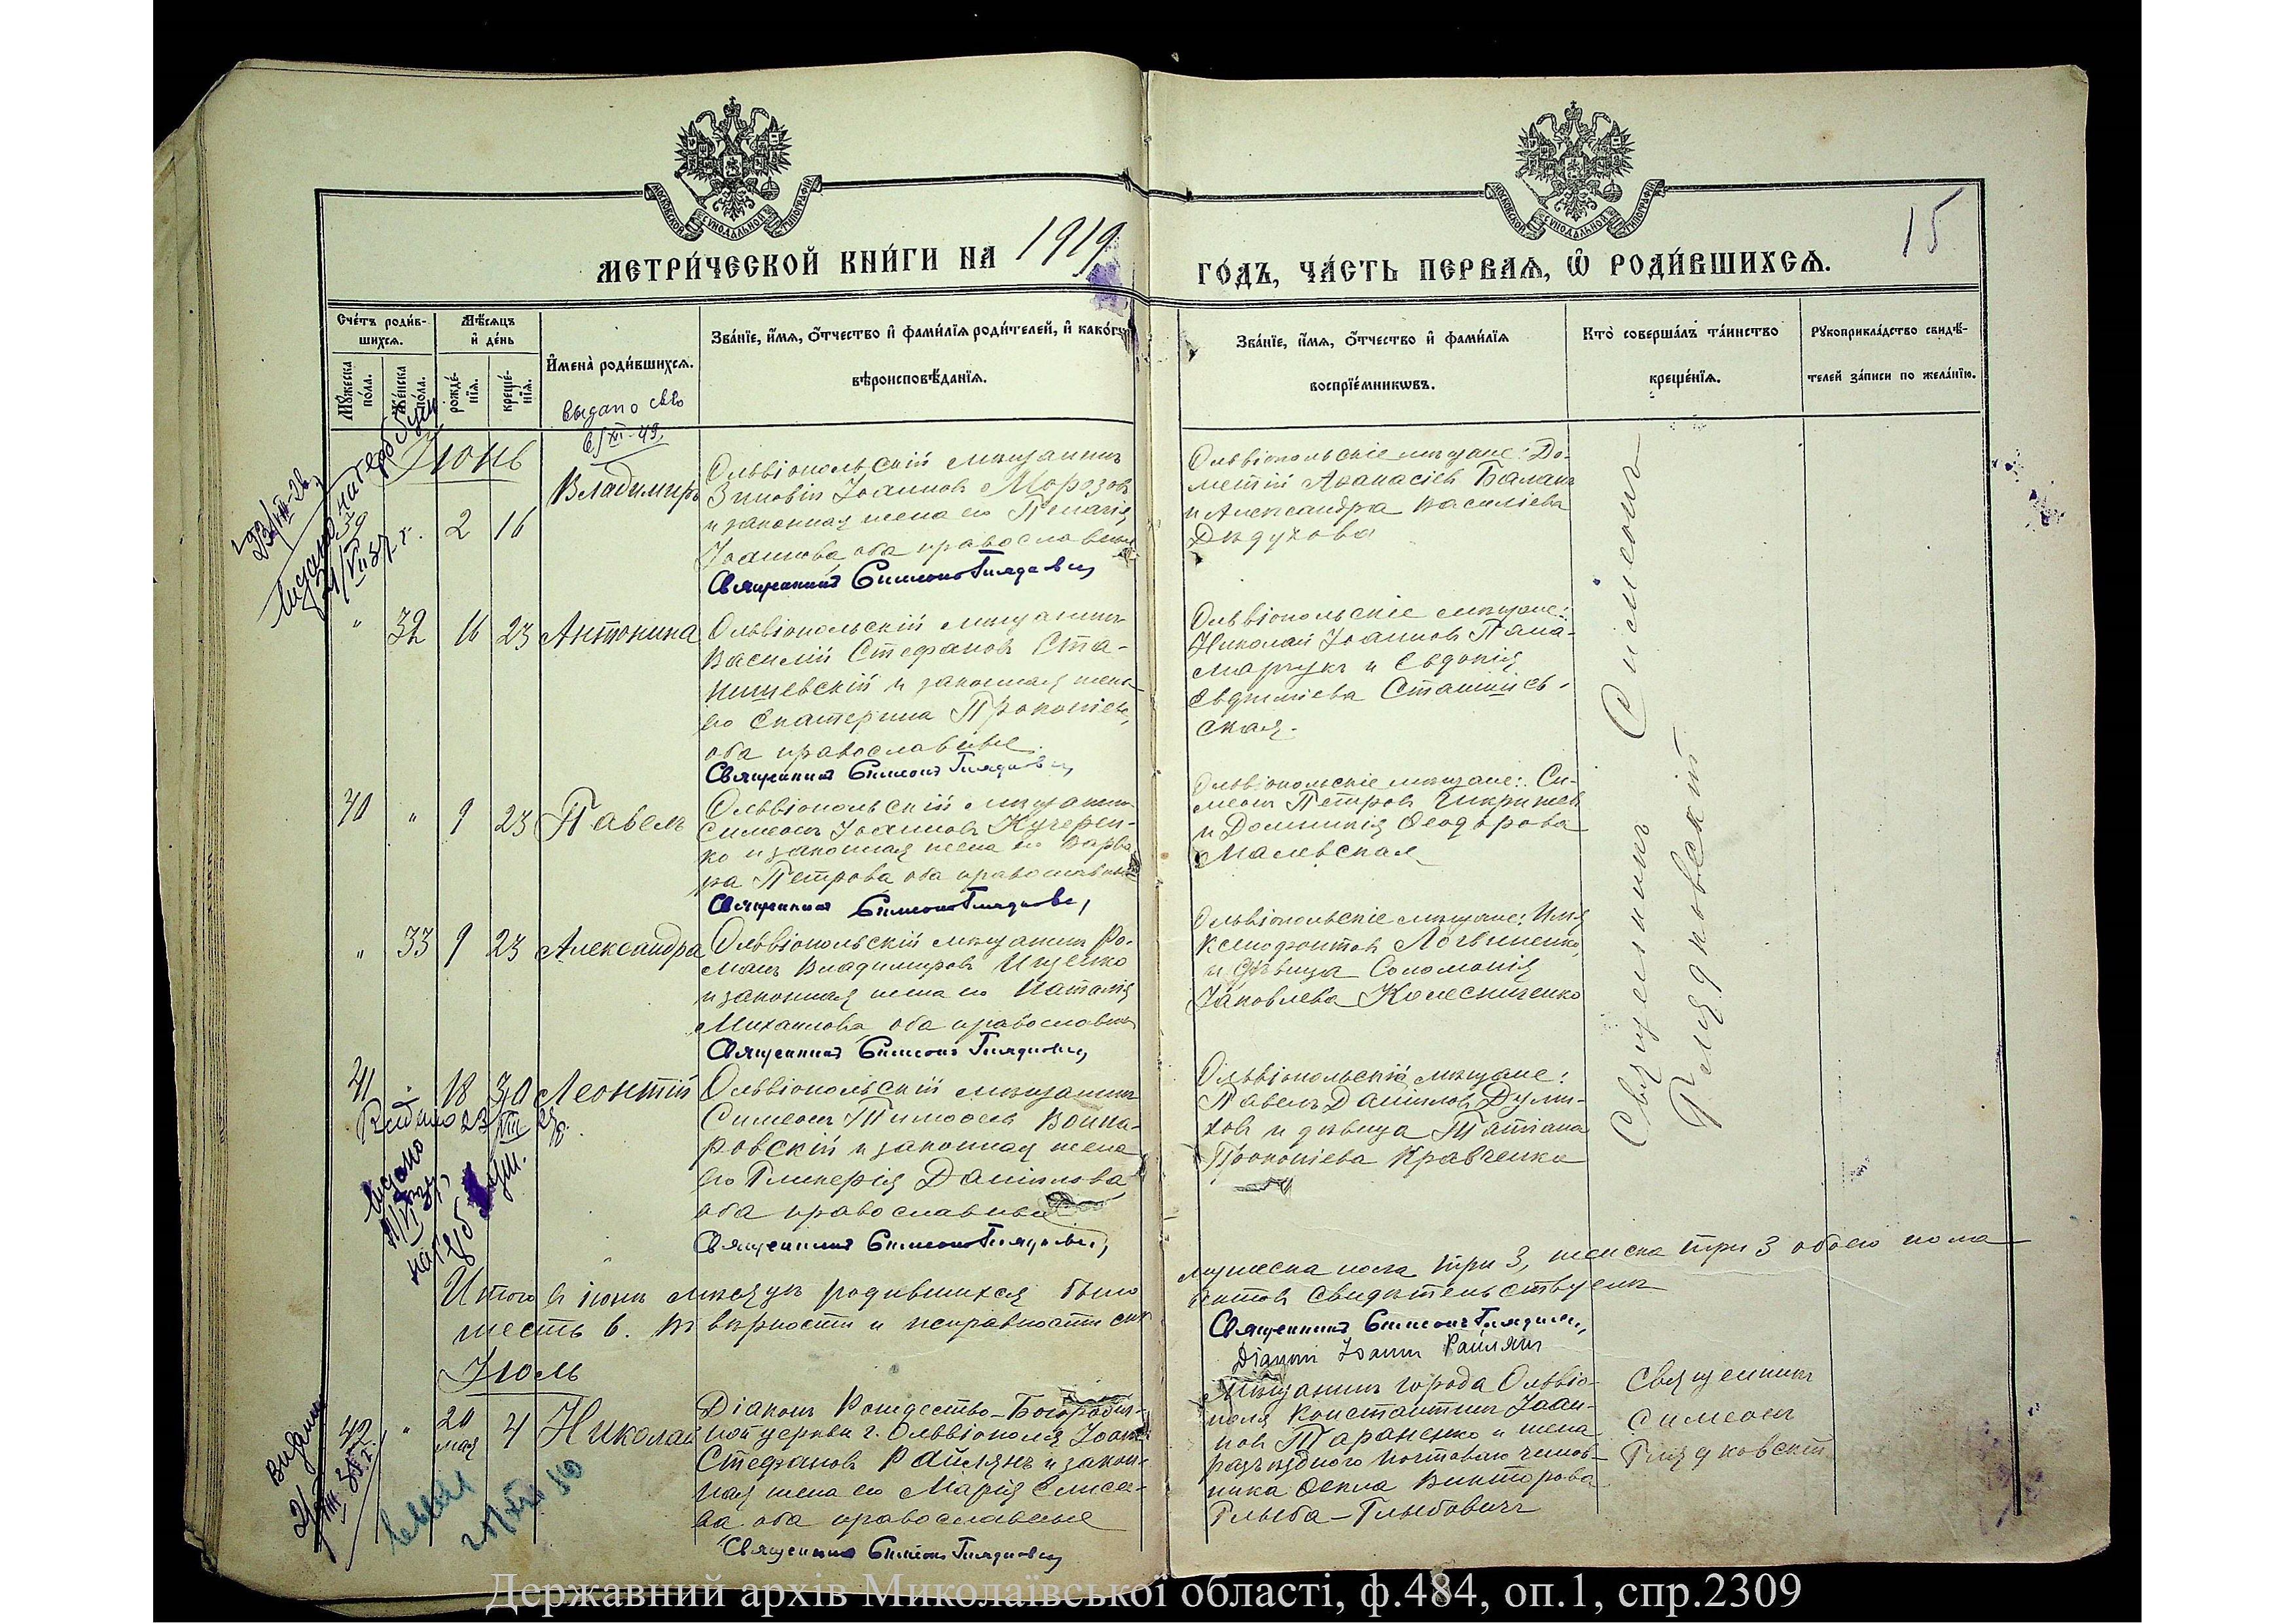 МОСКОВСКОЙ СУНОДАЛЬНОЙ ТИПОГРАФІИ
МОСКОВСКОЙ СУНОДАЛЬНОЙ ТИПОГРАФІИ
15
МЕТРИ́ЧЕСКОЙ КНИ́ГИ НА 1919 ГО́ДЪ, ЧА́СТЬ ПЕРВАѦ, Ѡ҆ РОДИ́ВШИХСѦ.
Сче́тъ роди́в-
шихсѧ.
Мꙋ́жеска по́ла.
Же́нска по́ла.
Мѣ́сѧцъ
и҆ де́нь
рожде́нїѧ.
креще́нїѧ.
И҆мена̀ роди́вшихсѧ.
Зва́нїе, и҆́мѧ, ѻ҆́тчество и҆ фами́лїѧ роди́телей, и҆ како́гѡ
вѣроисповѣ́данїѧ.
Зва́нїе, и҆́мѧ, ѻ҆́тчество и҆ фами́лїѧ
воспрїе́мникѡвъ.
Кто̀ соверша́лъ та́инство
креще́нїѧ.
Рꙋкоприкла́дство свидѣ́-
телей за́писи по жела́нїю.
выдано св-во
6/XII-49.
Іюнь
39 2 16 Владимиръ
Ольвіопольскій мѣщанинъ
Зиновій Іоанновъ Морозовъ
и законная жена его Пелагія
Іоаннова, оба православные
Священникъ Симеонъ Глядковскій
Ольвіопольскіе мѣщане: До-
метій Аѳанасіевъ Балан
и Александра Василіева
Дядухова
" 32 16 23 Антонина
Ольвіопольскій мѣщанинъ
Василій Стефановъ Ста-
нишевскій и законная жена
его Екатерина Прокопіева,
оба православные.
Священникъ Симеонъ Глядковскій
Ольвіопольскіе мѣщане:
Николай Іоанновъ Пана-
марчукъ и Евдокія
Евфиміева Станишев-
ская.
40 " 9 23 Павелъ
Ольвіопольскій мѣщанинъ
Симеонъ Іоанновъ Кучерен-
ко и законная жена его Варва-
ра Петрова оба православные
Священникъ Симеонъ Глядковскій
Ольвіопольскіе мѣщане: Си-
меонъ Петровъ
и Домникія Ѳеодорова
Малевская
" 33 9 23 Александра
Ольвіопольскій мѣщанинъ Ро-
манъ Владимировъ Ищенко
и законная жена его Наталія
Михаилова оба православные
Священникъ Симеонъ Глядковскій
Ольвіопольскіе мѣщане: Илія
Ксенофонтовъ Логвиненко
и дѣвица Соломонія
Іаковлева Колесниченко
41 " 18 30 Леонтій
Ольвіопольскій мѣщанинъ
Симеонъ Тимоѳеевъ Война-
ровскій и законная жена
его Гликерія Даніилова
оба православные
Священникъ Симеонъ Глядковскій
Ольвіопольскіе мѣщане:
Павелъ Даніиловъ Думи-
ховъ и дѣвица Татіана
Прокопіева Кравченко
Священникъ Симеонъ
Глядковскій
Итого въ іюнѣ мѣсяцѣ родившихся было мужеска пола три 3, женска три 3 обоего пола
шесть 6. Въ вѣрности и исправности сихъ актовъ свидѣтельствуемъ
Священникъ Симеонъ Глядковскій
Діаконъ Іоаннъ Райлянъ
Іюль
42 " 20 мая 4 Николай
Діаконъ Рождество-Богородич-
ной церкви г. Ольвіополя Іоаннъ
Стефановъ Райлянъ и закон-
ная жена его Марія Елисее-
ва оба православные
Священникъ Симеонъ Глядковскій
Мѣщанинъ города Ольвіо-
поля Константинъ Іоан-
новъ Тараненко и жена
разъѣздного почтоваго чинов-
ника Ѳекла Викторова
Глыба-Глыбовичъ
Священникъ
Симеонъ
Глядковскій
Державний архів Миколаївської області, ф.484, оп.1, спр.2309